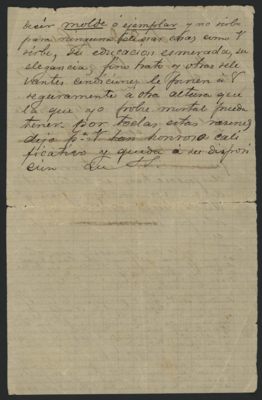 decir molde ó ejemplar y no sirbo
para ninguna de esas cosas como V
sirbe, su educacion esmerada, su
elegancia, fino trato y otras rele
vantes condiciones le ponen á V
seguramente á otra altura que
la que yo probe mortal pueda
tener. Por todas estas razones
dejo tan honroso cali
ficativo y queda á su disposi
cion